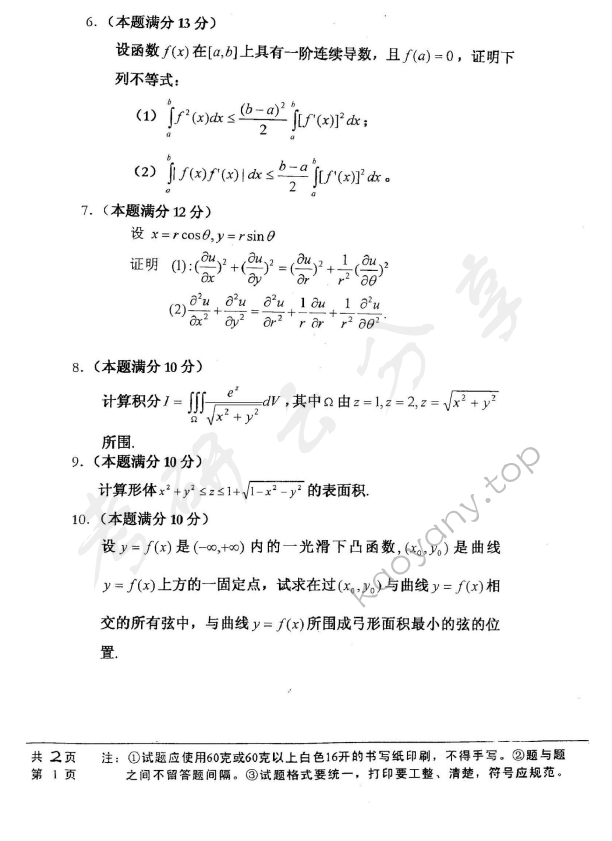 6．（本题满分 13 分）
设函数 f(x) 在[a,b]上具有一阶连续导数，且 f(a) = 0，证明下
列不等式：
（1）∫_a^b f²(x)dx ≤ (b−a)²/2 ∫_a^b [f'(x)]² dx；
（2）∫_a^b | f(x)f'(x) | dx ≤ (b−a)/2 ∫_a^b [f'(x)]² dx 。
7．（本题满分 12 分）
设 x = r cosθ, y = r sinθ
证明 (1):(∂u/∂x)² + (∂u/∂y)² = (∂u/∂r)² + 1/r² (∂u/∂θ)²
(2) ∂²u/∂x² + ∂²u/∂y² = ∂²u/∂r² + 1/r ∂u/∂r + 1/r² ∂²u/∂θ² .
8．（本题满分 10 分）
计算积分 I = ∭_Ω e^z/√(x² + y²) dV ，其中Ω由 z = 1, z = 2, z = √(x² + y²)
所围.
9．（本题满分 10 分）
计算形体 x² + y² ≤ z ≤ 1 + √(1 − x² − y²) 的表面积.
10．（本题满分 10 分）
设 y = f(x) 是 (−∞,+∞) 内的一光滑下凸函数, (x₀, y₀) 是曲线
y = f(x) 上方的一固定点，试求在过 (x₀, y₀) 与曲线 y = f(x) 相
交的所有弦中，与曲线 y = f(x) 所围成弓形面积最小的弦的位
置.
共 2 页 注：①试题应使用60克或60克以上白色16开的书写纸印刷，不得手写。②题与题
第 1 页 之间不留答题间隔。③试题格式要统一，打印要工整、清楚，符号应规范。
考研云分享
kaoyany.top